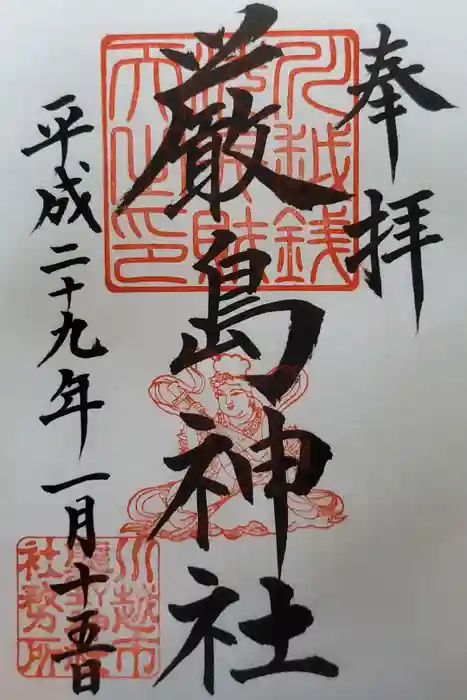 奉拝
川越銭
洗弁財
天之印
厳島神社
平成二十九年一月十五日
川越市
社務所